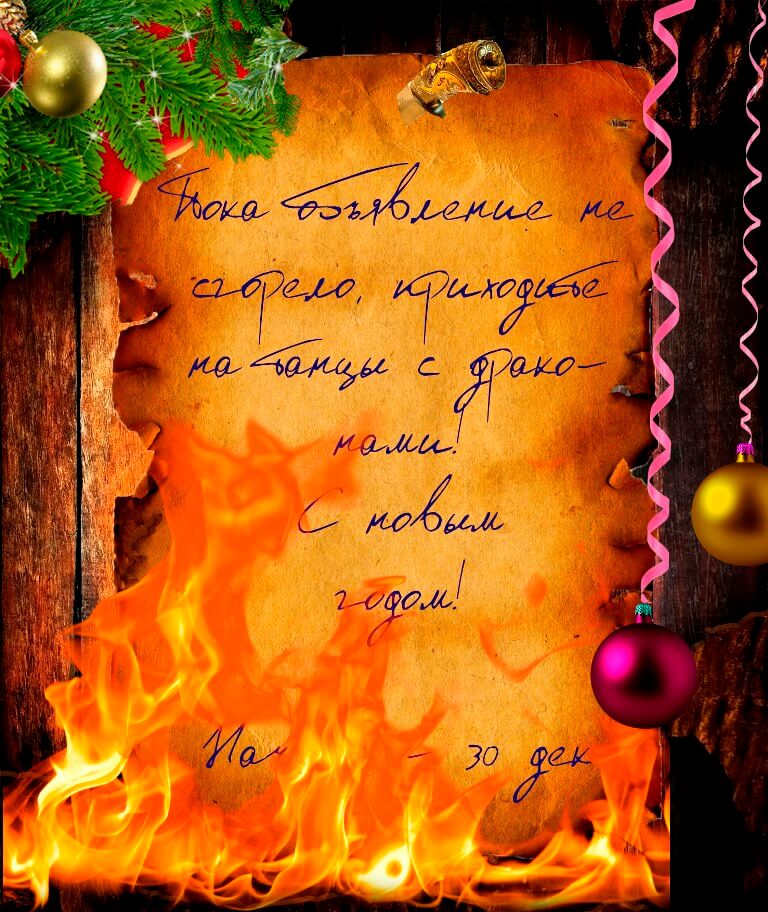 Пока объявление не
сгорело, приходите
на танцы с драко-
нами!
С новым
годом!
На - 30 дек